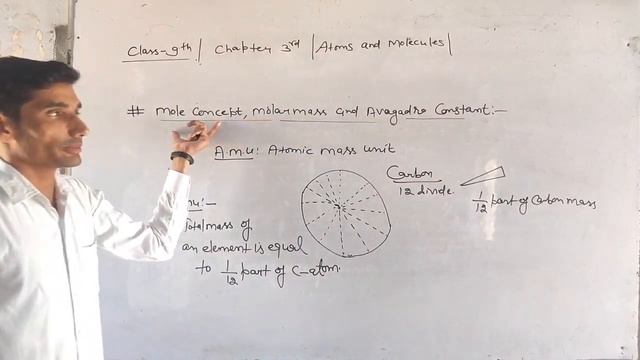 Class-9th / Chapter 3rd | Atoms and Molecules |
# Mole Concept, Molar mass and Avagadro Constant:-
A.m.u: Atomic mass unit
Carbon
12 divide.
1/12 part of Carbon mass
mu:-
Total mass of
an element is equal
to 1/12 part of C-atom.